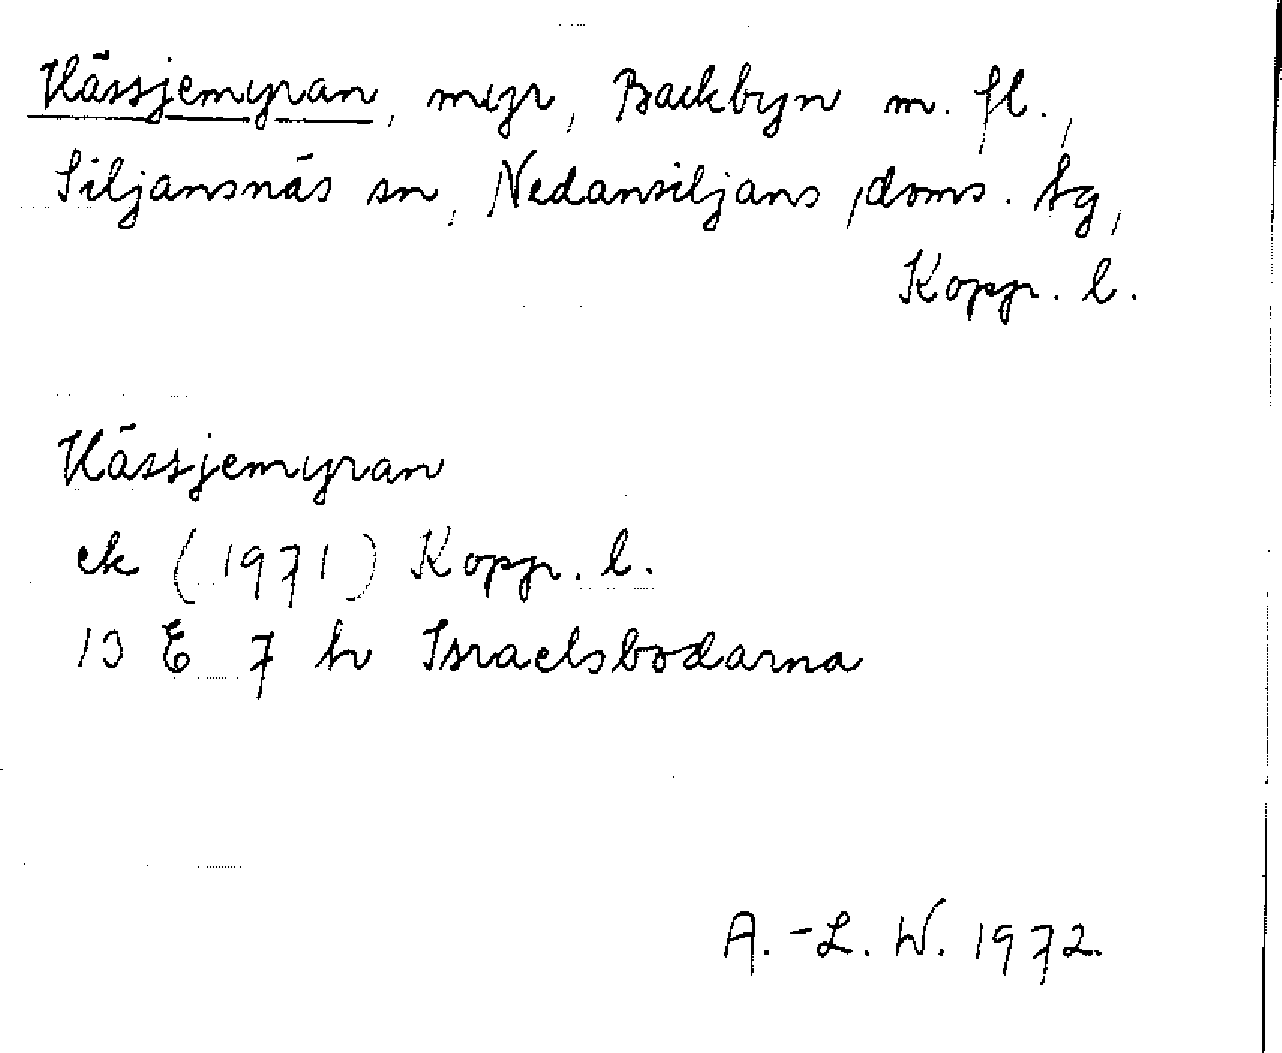 Kässjemyran, myr, Backbyn m. fl.,
Siljansnäs sn, Nedansiljans doms. tg,
Kopp. l.
Kässjemyran
ek (1971) Kopp. l.
13 E 7 h Israelsbodarna
A.-L. W. 1972.